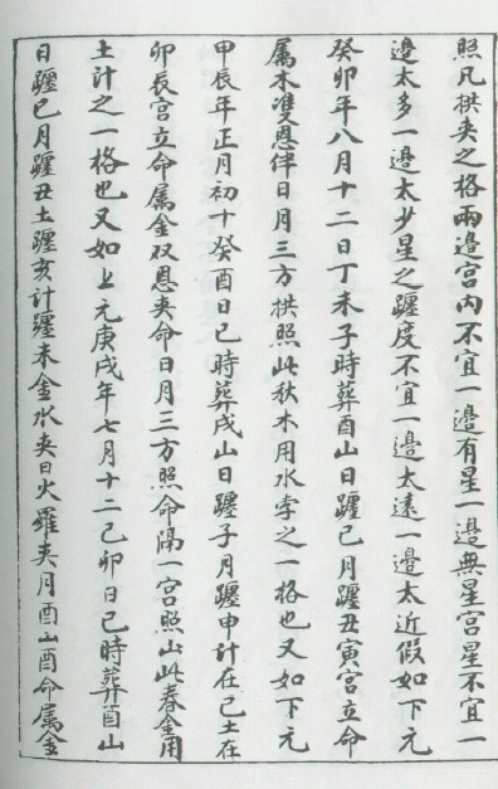 照凡拱夾之格兩邉宮内不宜一邉有星一邉無星宮星不宜一
邉太多一邉太少星之躔度不宜一邉太遠一邉太近假如下元
癸卯年八月十二日丁未子時葬酉山日躔巳月躔丑寅宮立命
属木雙恩伴日月三方拱照此秋木用水孛之一格也又如下元
甲辰年正月初十癸酉日巳時葬戌山日躔子月躔申計在巳土在
卯辰宮立命属金双恩夾命日月三方照命隔一宮照山此春金用
土計之一格也又如上元庚戌年七月十二己卯日巳時葬酉山
日躔巳月躔丑土躔亥計躔未金水夾日火羅夾月酉山酉命属金